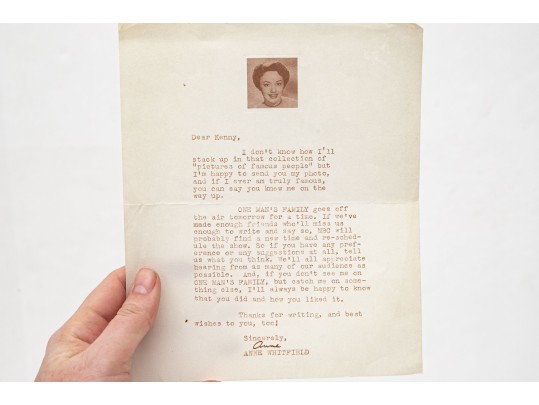 Dear Kenny,
I don't know how I'll
stack up in that collection of
"pictures of famous people" but
I'm happy to send you my photo,
and if I ever am truly famous,
you can say you knew me on the
way up.
ONE MAN'S FAMILY goes off
the air tomorrow for a time. If we've
made enough friends who'll miss us
enough to write and say so, NBC will
probably find a new time and re-sched-
ule the show. So if you have any pref-
erence or any suggestions at all, tell
us what you think. We'll all appreciate
hearing from as many of our audience as
possible. And, if you don't see me on
ONE MAN'S FAMILY, but catch me on some-
thing else, I'll always be happy to know
that you did and how you liked it.
Thanks for writing, and best
wishes to you, too!
Sincerely,
Anne
ANNE WHITFIELD